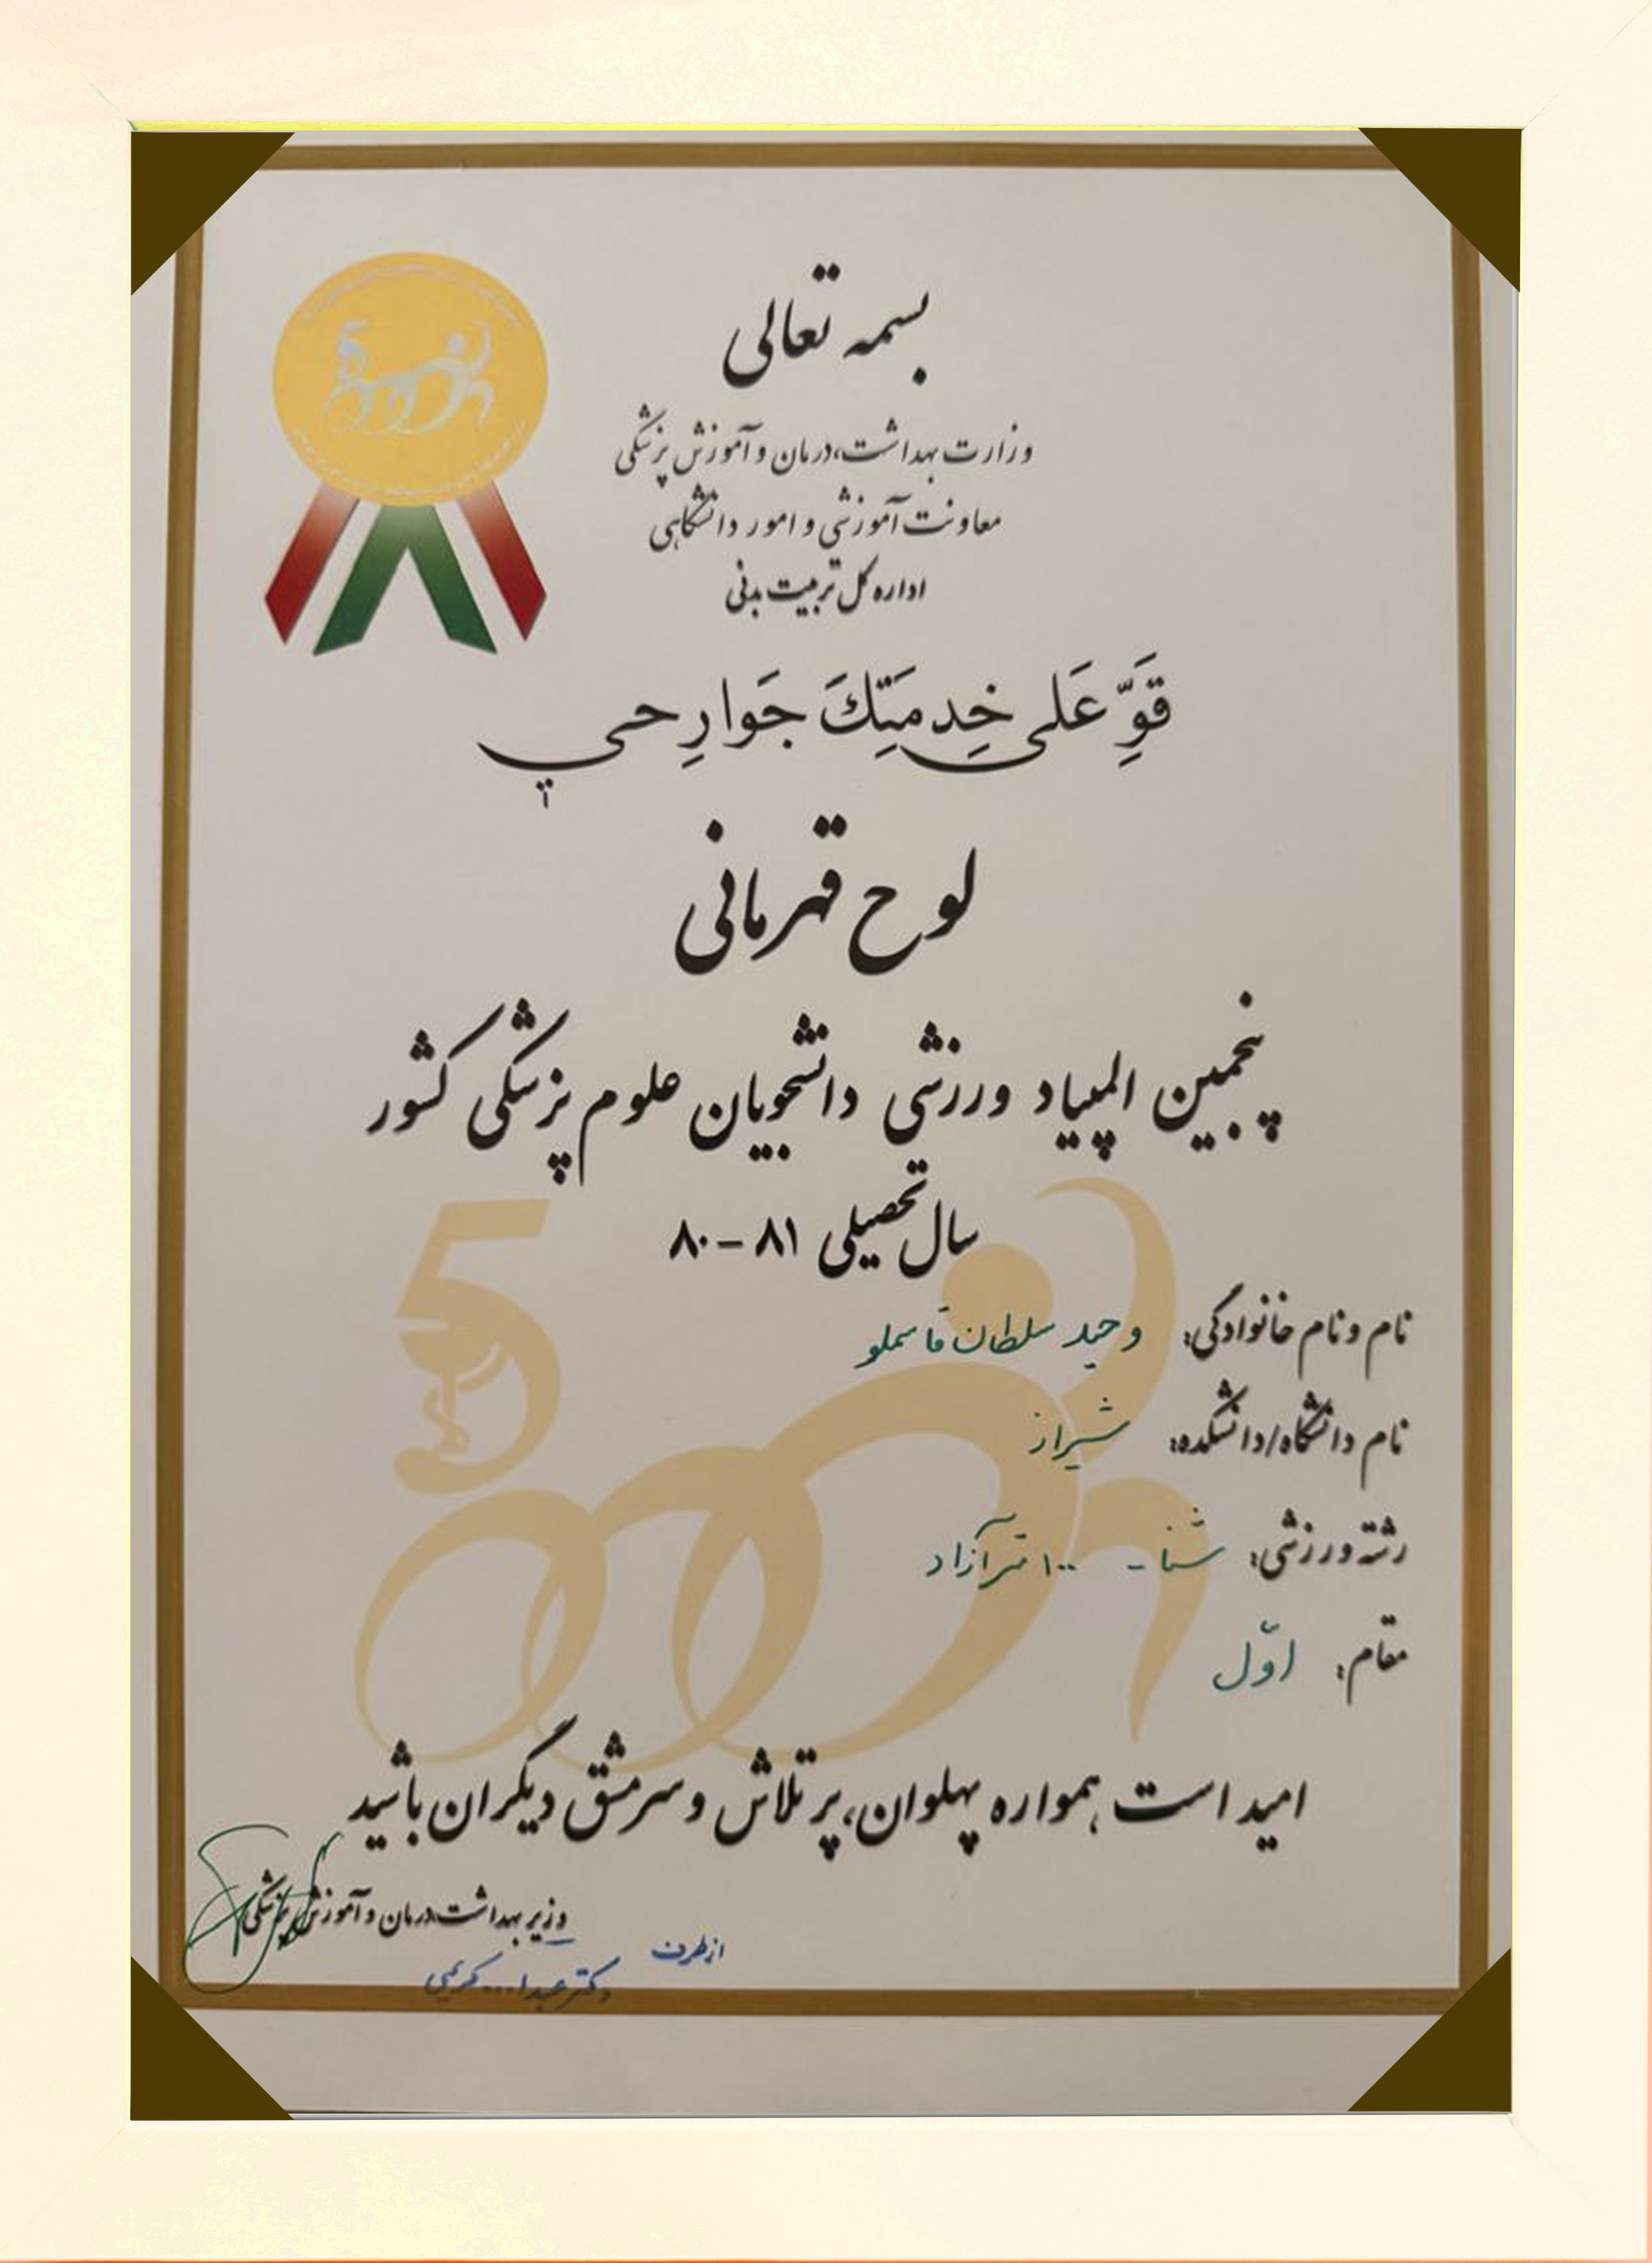 بسمه تعالی
وزارت بهداشت،درمان و آموزش پزشکی
معاونت آموزشی و امور دانشگاهی
اداره کل تربیت بدنی
قَوِّ عَلی خِدمَتِكَ جَوارِحی
لوح قهرمانی
پنجمین المپیاد ورزشی دانشجویان علوم پزشکی کشور
سال تحصیلی ۸۱ – ۸۰
نام و نام خانوادگی: وحید سلطان قاسملو
نام دانشگاه/دانشکده: شیراز
رشته ورزشی: شنا - ۱۰۰ متر آزاد
مقام: اوّل
امید است همواره پهلوان،پر تلاش و سرمشق دیگران باشید
وزیر بهداشت درمان و آموزش پزشکی
از طرف
دکتر عبدا... کریمی
5